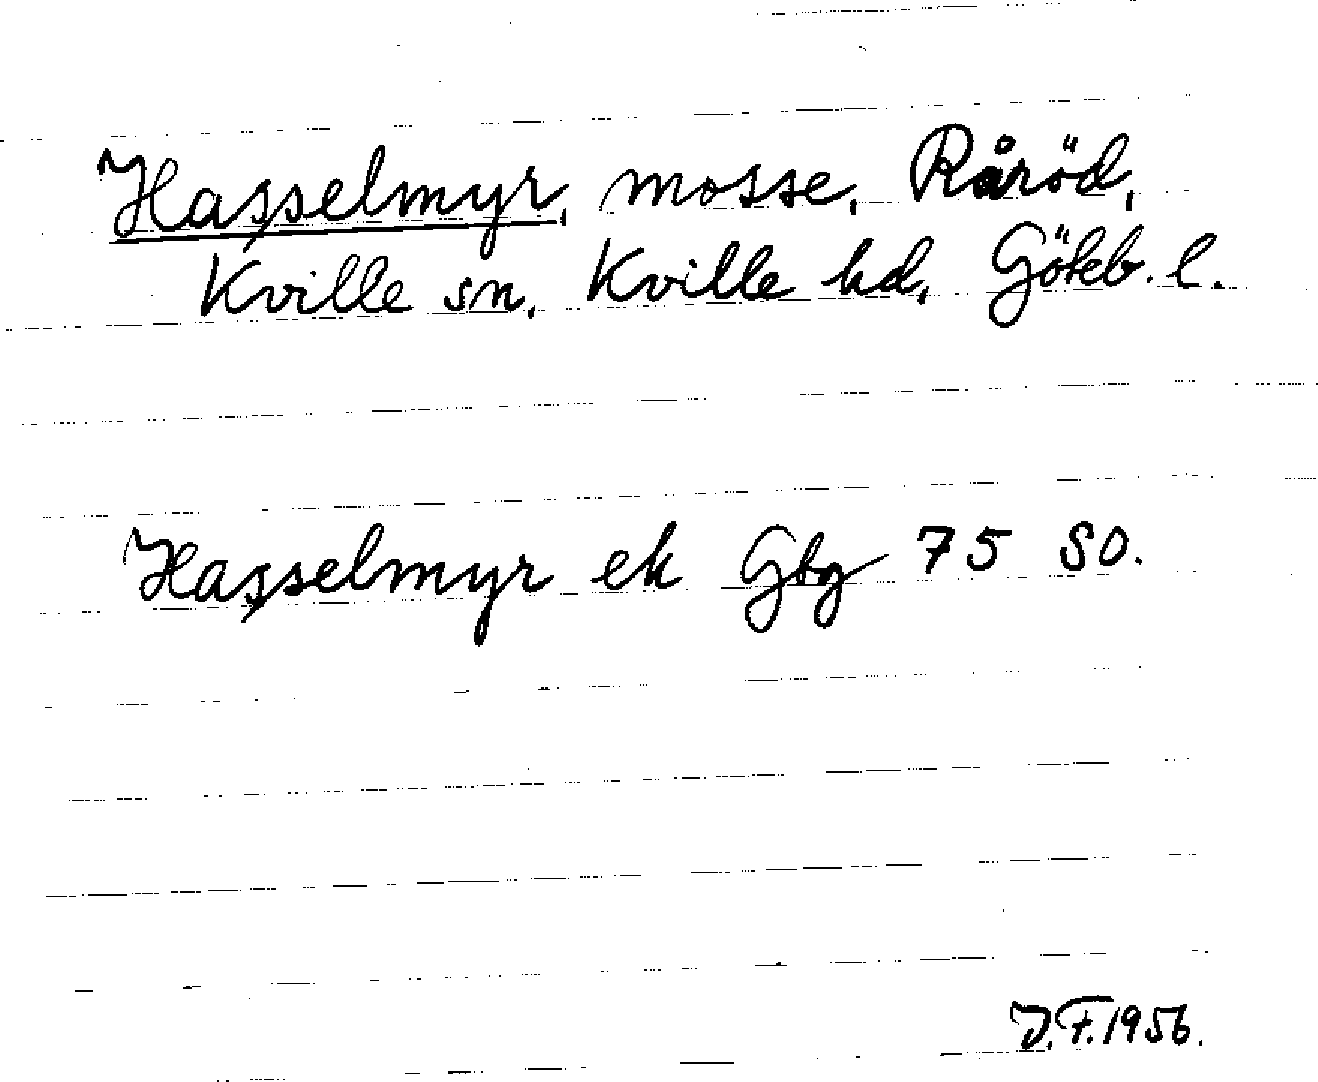 Hasselmyr, mosse, Råröd,
Kville sn, Kville hd, Göteb. l.
Hasselmyr ek Gbg 75 SO.
J.F. 1956.